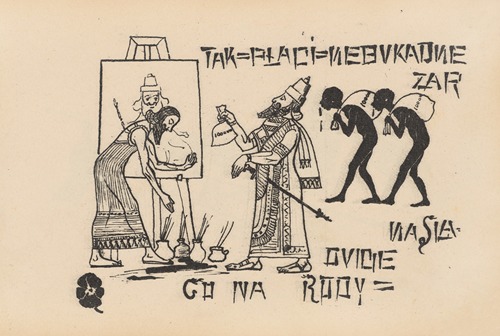 TAK=PŁACI=NEBUKADNE
ZAR
NAŚLA-
DUJCIE
GO NA RODY=